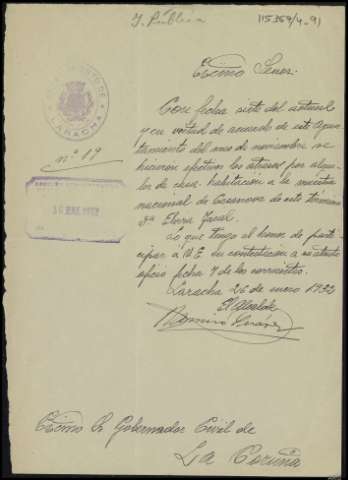 I. Pública
115.359/4-91
AYUNTAMIENTO DE
LARACHA
Excmo Señor:
nº 19
Con fecha siete del actual
y en virtud de acuerdo de este Ayun-
tamiento del mes de noviembre se
hicieron efectivos los atrasos por alqui-
ler de casa habitación a la maestra
nacional de Casanova de este termino
Dª Elvira
Lo que tengo el honor de parti-
cipar a V.E. en contestación a su atento
oficio fecha 9 de los corrientes.
Laracha 26 de enero 1932
El Alcalde
Excmo Sr Gobernador Civil de
La Coruña